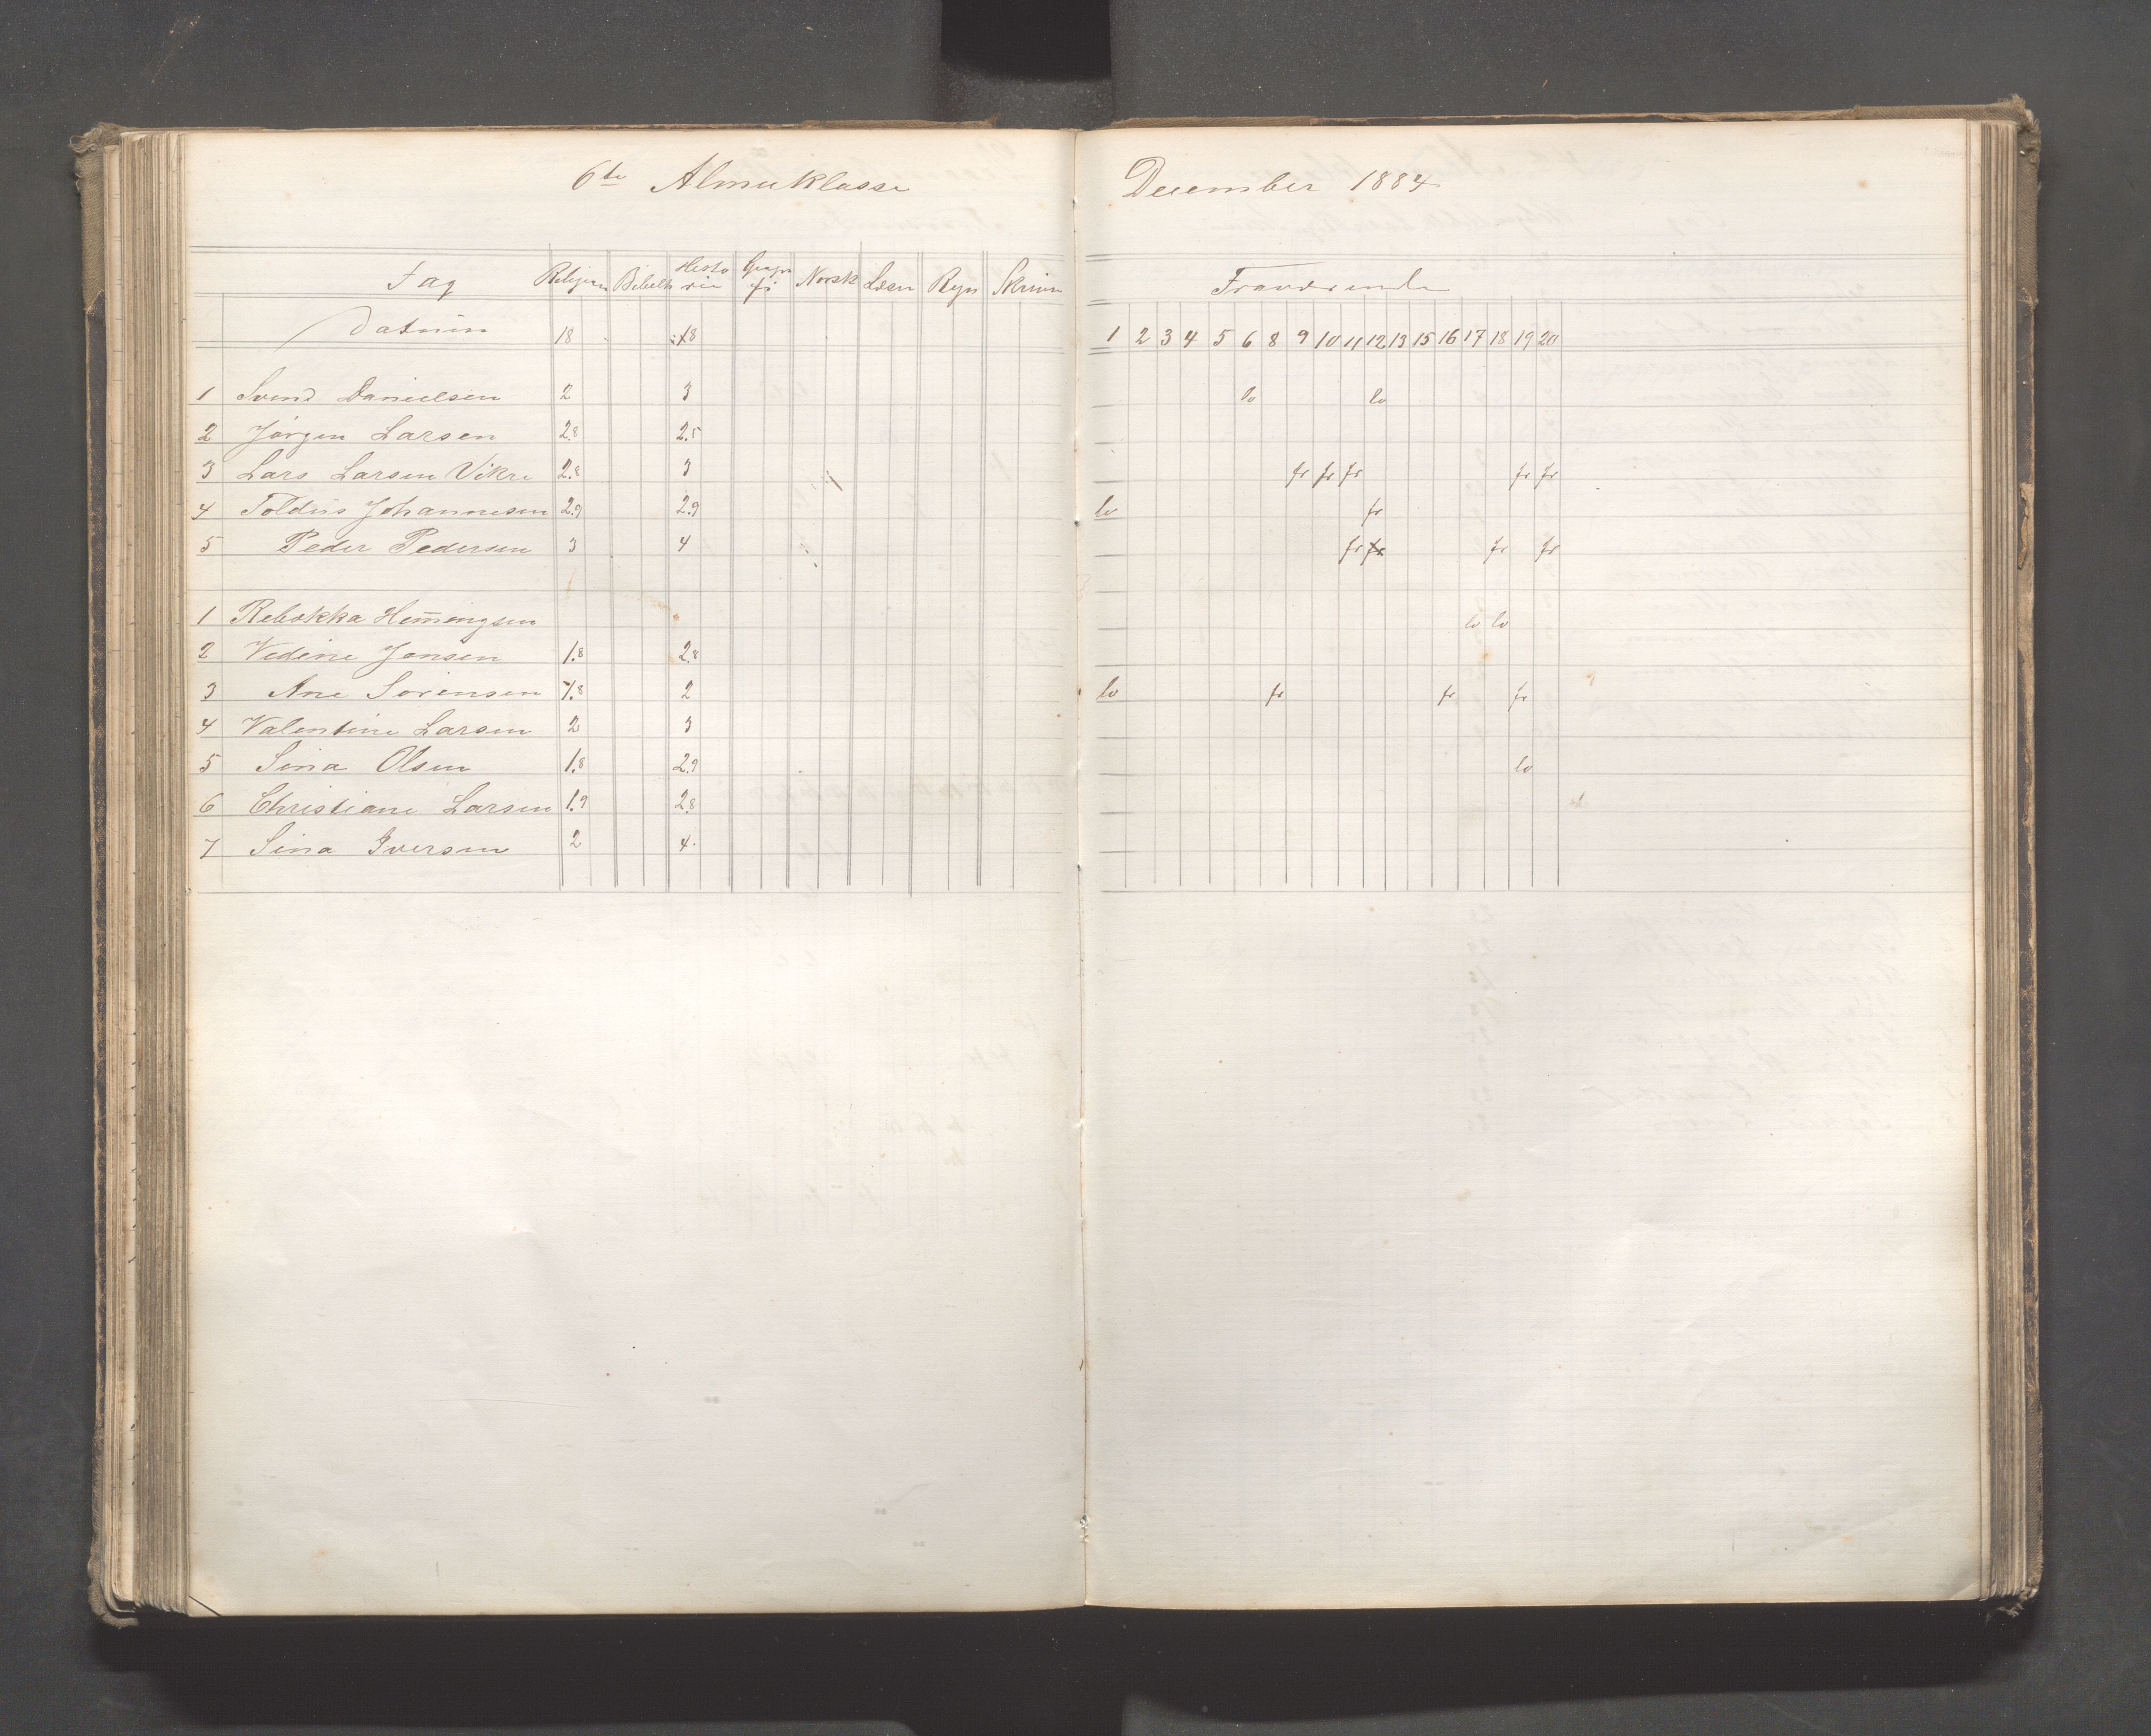 6te Almueklasse December 1884
Fag Religion Bibelh Histo rie Geogra fi Norsk Læsn Regn Skrivn Fraværende
Datum 18 18 1 2 3 4 5 6 8 9 10 11 12 13 15 16 17 18 19 20
1 Svend Danielsen 2 3 lo lo
2 Jørgen Larsen 2.8 2.5
3 Lars Larsen Vikre 2.8 3 fr fr fr fr fr
4 Toldus Johannesen 2.9 2.9 lo fr
5 Peder Pedersen 3 4 fr fr fr fr
1 Rebekka Hem̅ingsen lo lo
2 Vedine Jansen 1.8 2.8
3 Ane Sørensen 1.8 2 lo fr fr fr
4 Valentine Larsen 2 3
5 Sina Olsen 1.8 2.9 lo
6 Christiane Larsen 1.9 2.8
7 Sina Iversen 2 4.